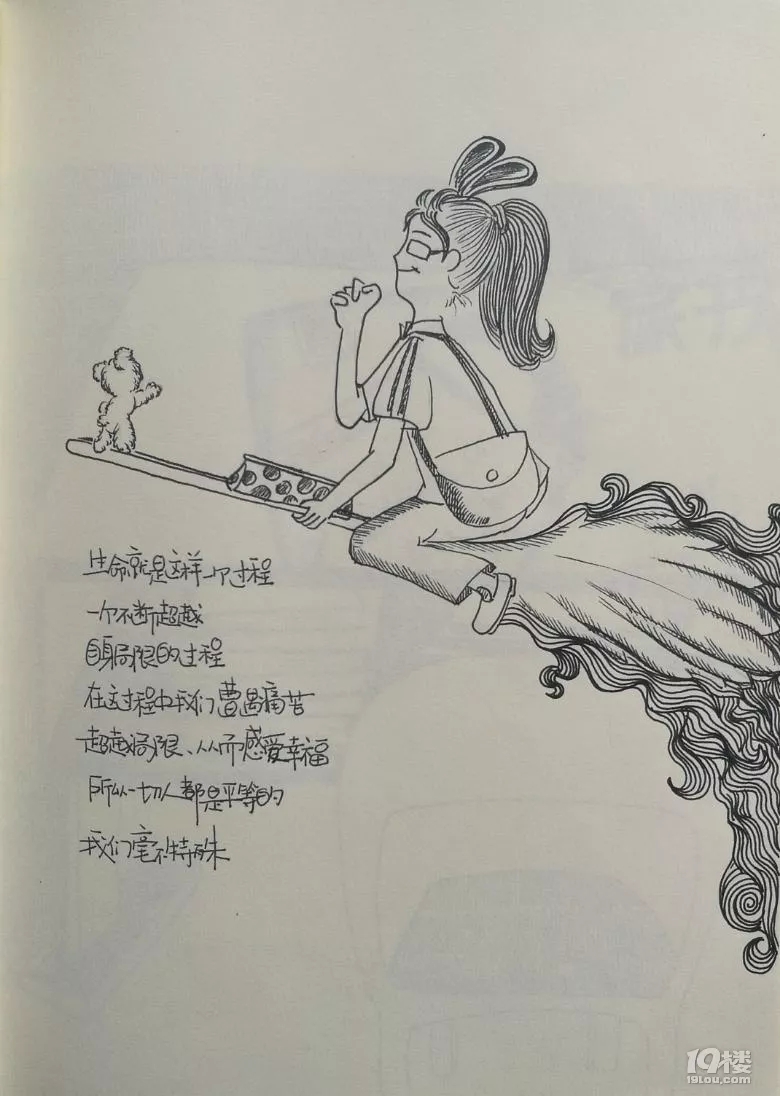 生命就是这样一个过程
一个不断超越
自身局限的过程
在这过程中我们遭遇痛苦
超越局限、从而感爱幸福
所以一切人都是平等的
我们毫不特殊
19楼
19lou.com